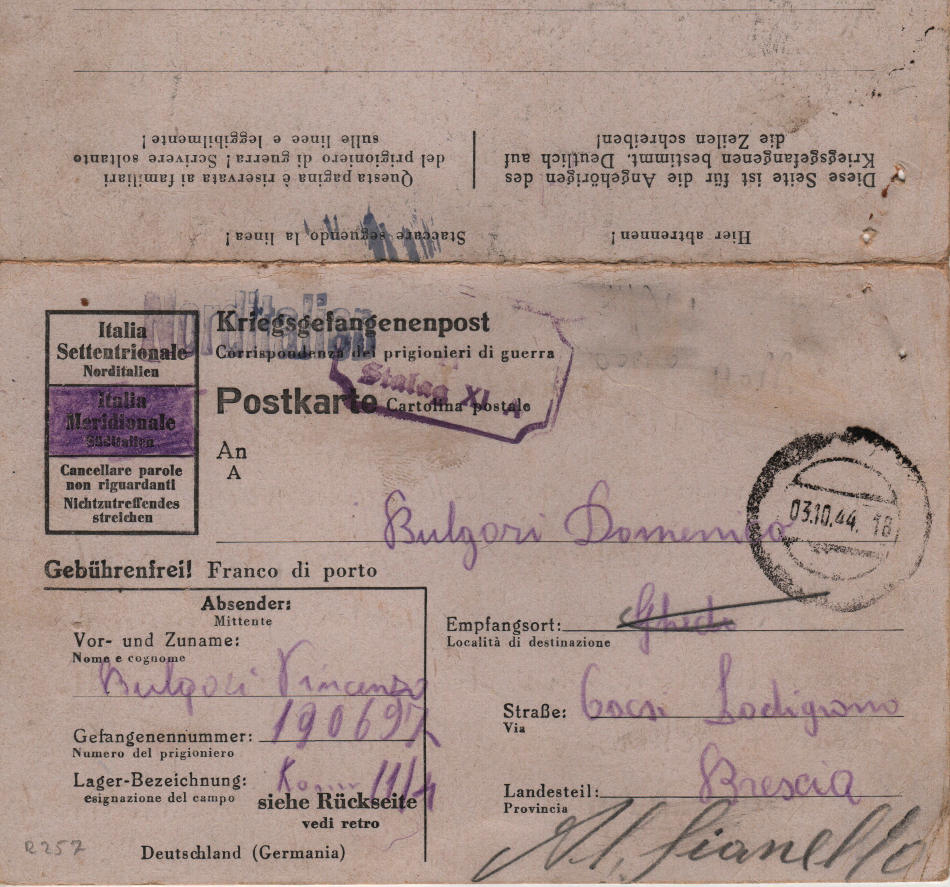 die Zeilen schreiben!
Kriegsgefangenen bestimmt. Deutlich auf
Diese Seite ist für die Angehörigen des
sulle linee e leggibilmente!
del prigioniero di guerra! Scrivere soltanto
Questa pagina è riservata ai familiari
Hier abtrennen!
Staccare seguendo la linea!
Norditalien
Italia
Settentrionale
Norditalien
Italia
Meridionale
Süditalien
Cancellare parole
non riguardanti
Nichtzutreffendes
streichen
Kriegsgefangenenpost
Corrispondenza dei prigionieri di guerra
Stalag XI A
Postkarte Cartolina postale
An
A
Bulgari Domenico
03.10.44. 18
Gebührenfrei! Franco di porto
Absender:
Mittente
Vor- und Zuname:
Nome e cognome
Bulgari Vincenzo
Gefangenennummer: 190697
Numero del prigioniero
Lager-Bezeichnung:
esignazione del campo
siehe Rückseite
vedi retro
Deutschland (Germania)
Empfangsort: Ghedi
Località di destinazione
Straße:
Via
Landesteil: Brescia
Provincia
R257